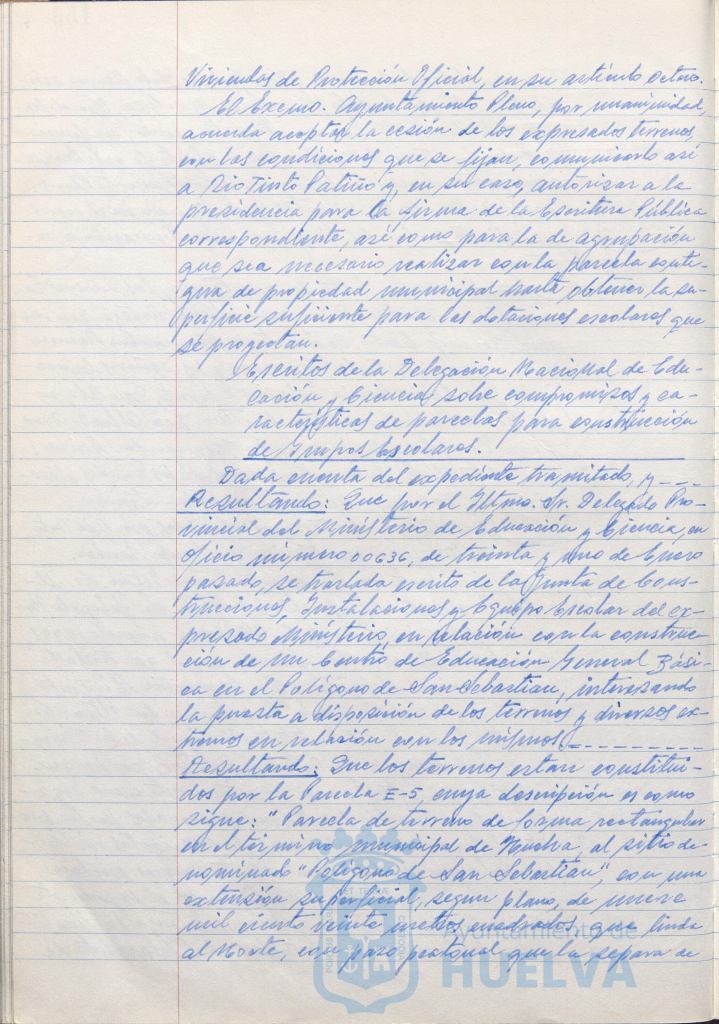 Viviendas de Protección Oficial, en su artículo octavo.
El Excmo. Ayuntamiento Pleno, por unanimidad,
acuerda aceptar la cesión de los expresados terrenos,
con las condiciones que se fijan, comunicarlo así
a Rio Tinto Patiño y, en su caso, autorizar a la
presidencia para la firma de la Escritura Pública
correspondiente, así como para la de agrupación
que sea necesario realizar con la parcela conti-
gua de propiedad municipal hasta obtener la su-
perficie suficiente para las dotaciones escolares que
se proyectan.
Escritos de la Delegación Nacional de Edu-
cación y Ciencia sobre compromisos y ca-
racterísticas de parcelas para construcción
de Grupos Escolares.
Dada cuenta del expediente tramitado, y ---
Resultando: Que por el Iltmo. Sr. Delegado Pro-
vincial del Ministerio de Educación y Ciencia, en
oficio número 00636, de treinta y uno de Enero
pasado, se traslada escrito de la Junta de Cons-
trucciones, Instalaciones y Equipo Escolar del ex-
presado Ministerio, en relación con la construc-
ción de un Centro de Educación General Bási-
ca en el Polígono de San Sebastian, interesando
la puesta a disposición de los terrenos y diversos ex-
tremos en relación con los mismos. --------
Resultando: Que los terrenos estan constitui-
dos por la Parcela E-5 cuya descripción es como
sigue: "Parcela de terreno de forma rectangular
en el término municipal de Huelva, al sitio de-
nominado "Polígono de San Sebastián", con una
extensión superficial, segun plano, de nueve
mil ciento veinte metros cuadrados, que linda
al Norte, con paso peatonal que la separa de
Ayuntamiento de
HUELVA